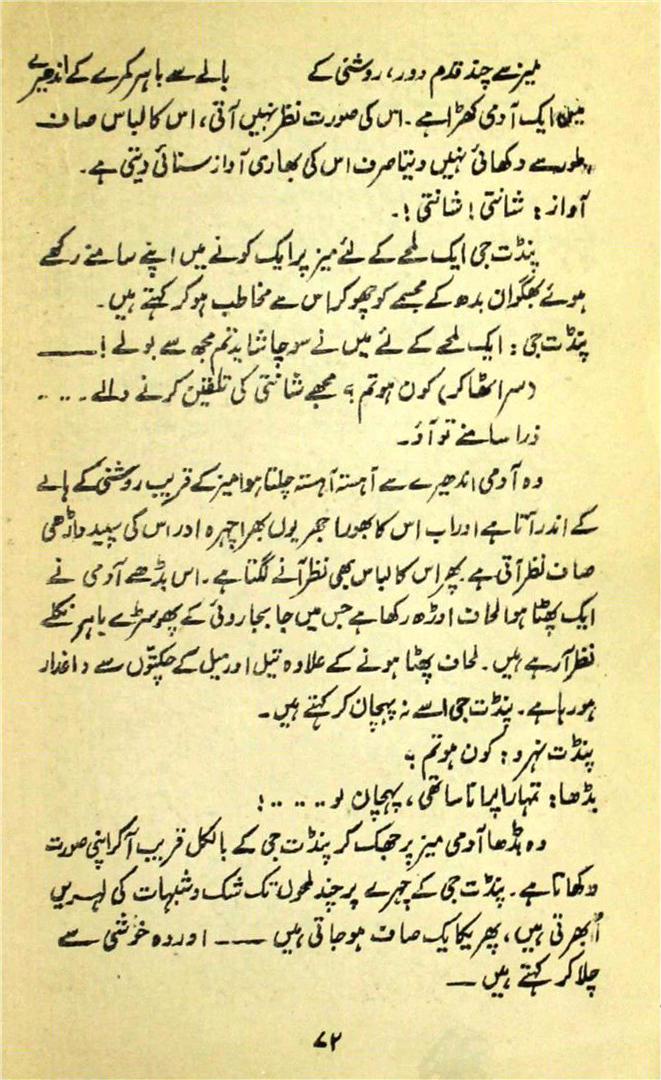 میز سے چند قدم دور، روشنی کے ہالے سے باہر کمرے کے اندھیرے
میں ایک آدمی کھڑا ہے۔ اس کی صورت نظر نہیں آتی، اس کا لباس صاف
طور سے دکھائی نہیں دیتا صرف اس کی بھاری آواز سنائی دیتی ہے۔
آواز: شانتی! شانتی!۔
پنڈت جی ایک لمحے کے لئے میز پر ایک کونے میں اپنے سامنے رکھے
ہوئے بھگوان بدھ کے مجسمے کو چھو کر اس سے مخاطب ہو کر کہتے ہیں۔
پنڈت جی: ایک لمحے کے لئے میں نے سوچا شاید تم مجھ سے بولے! ——
(سر اٹھا کر) کون ہو تم؟ مجھے شانتی کی تلقین کرنے والے۔ ...
ذرا سامنے تو آؤ۔
وہ آدمی اندھیرے سے آہستہ آہستہ چلتا ہوا میز کے قریب روشنی کے ہالے
کے اندر آتا ہے اور اب اس کا بھورا جھریوں بھرا چہرہ اور اس کی سپید داڑھی
صاف نظر آتی ہے پھر اس کا لباس بھی نظر آنے لگتا ہے۔ اس بڈھے آدمی نے
ایک پھٹا ہوا لحاف اوڑھ رکھا ہے جس میں جا بجا روئی کے پھوسڑے باہر نکلے
نظر آرہے ہیں۔ لحاف پھٹا ہونے کے علاوہ تیل اور میل کے چکتّوں سے داغدار
ہو رہا ہے۔ پنڈت جی اسے نہ پہچان کر کہتے ہیں۔
پنڈت نہرو: کون ہو تم؟
بڈھا: تمہارا پرانا ساتھی، پہچان لو ....!
وہ بڈھا آدمی میز پر جھک کر پنڈت جی کے بالکل قریب آکر اپنی صورت
دکھاتا ہے۔ پنڈت جی کے چہرے پر چند لمحوں تک شک و شبہات کی لہریں
اُبھرتی ہیں، پھر یکایک صاف ہو جاتی ہیں —— اور وہ خوشی سے
چلا کر کہتے ہیں —
۷۲